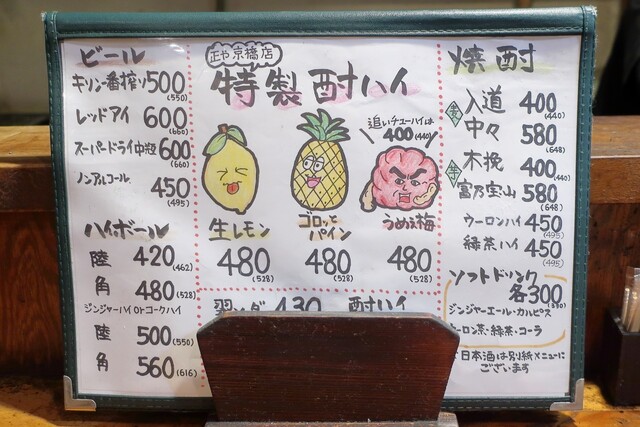 ビール
キリン一番搾り 500 (550)
レッドアイ 600 (660)
スーパードライ中瓶 600 (660)
ノンアルコール 450 (495)
ハイボール
陸 420 (462)
角 480 (528)
ジンジャーハイ or コークハイ
陸 500 (550)
角 560 (616)
正や 京橋店
特製酎ハイ
追いチューハイは
400 (440)
生レモン
480 (528)
ゴロッと
パイン
480 (528)
うめぇ梅
480 (528)
430 酎ハイ
焼酎
麦 入道 400 (440)
中々 580 (648)
芋 木挽 400 (440)
富乃宝山 580 (648)
ウーロンハイ 450 (495)
緑茶ハイ 450 (495)
ソフトドリンク
各300 (330)
ジンジャーエール・カルピス
ウーロン茶・緑茶・コーラ
日本酒は別紙メニューに
ございます